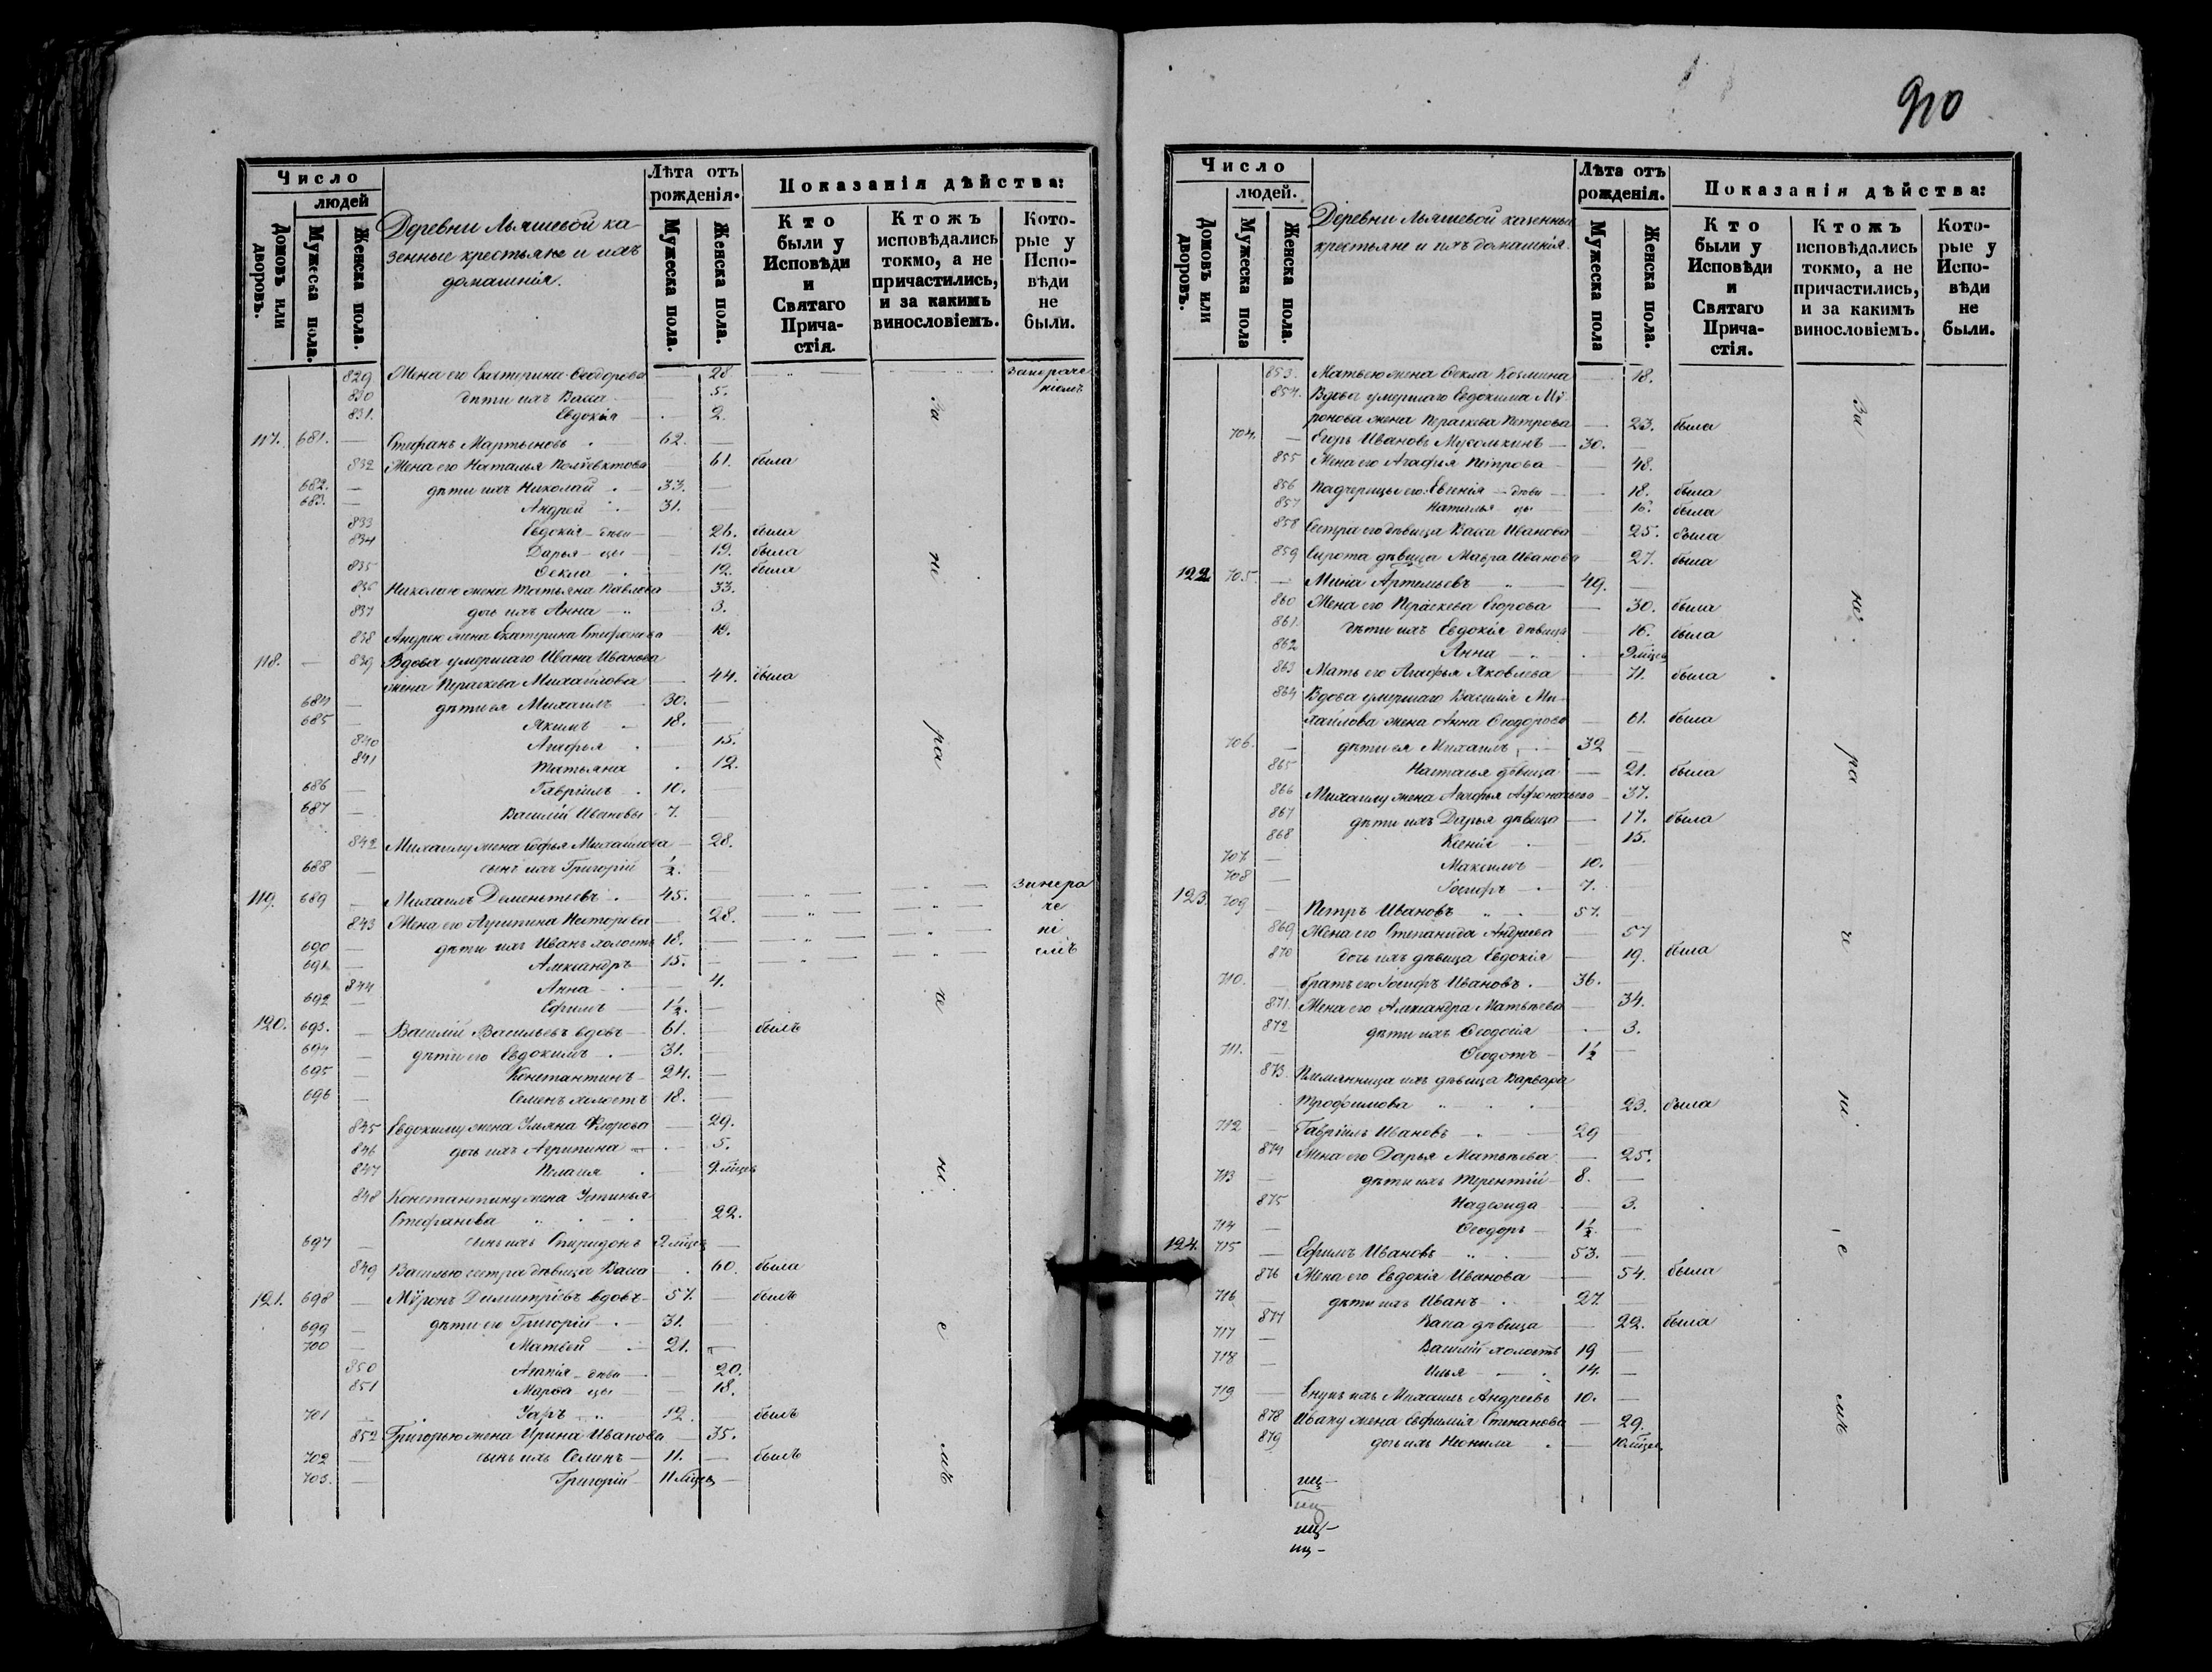 910
Число
людей
Домовъ или дворовъ.
Мужеска пола.
Женска пола.
Деревни Ляшевой ка-
зенные крестьяне и ихъ
домашнія.
Лѣта отъ рожденія.
Мужеска пола.
Женска пола.
Показанія дѣйства:
Кто были у Исповѣди и Святаго Прича-стія.
Ктожъ исповѣдались токмо, а не причастились, и за какимъ винословіемъ.
Кото-рые у Испо-вѣди не были.
829 Жена его Екатерина Ѳеодорова 28
830 дѣти ихъ Васса 5.
831. Евдокія 2.
117. 681. Стефанъ Мартыновъ 62.
832 Жена его Наталья Полиевктова 61. была
682. дѣти ихъ Николай 33.
683. Андрей 31.
833 Евдокія дѣви 26. была
834 Дарья цы 19. была
835 Ѳекла 12. была
836 Николаю жена Татьяна Павлова 33.
837 дочь ихъ Анна 3.
838 Андрею жена Екатерина Стефанова 19.
118. 839 Вдова умершаго Ивана Иванова
жена Параскева Михайлова 44. была
684 дѣти ея Михаилъ 30.
685 Якимъ 18.
840 Агафья 15.
841 Татьяна 12.
686 Гавріилъ 10.
687 Василій Ивановы 7.
842 Михаилу жена Софья Михайлова 28.
688 сынъ ихъ Григорій ½.
119. 689 Михаилъ Дементьевъ 45.
843 Жена его Агрипина Нестерова 28.
690 дѣти ихъ Иванъ холостъ 18.
691 Александръ 15.
844 Анна 4.
692 Ефимъ 1½.
120. 693. Василій Васильевъ вдовъ 61. былъ
694 дѣти его Евдокимъ 31.
695 Константинъ 24.
696 Семенъ холостъ 18.
845 Евдокиму жена Ульяна Егорова 29.
846 дочь ихъ Агрипина 5.
847 Пелагія 9 мѣсец
848 Константину жена Устинья
Стефанова 22.
697 сынъ ихъ Спиридонъ 9 мѣсец
849 Василью сестра дѣвица Васса 60. была
121. 698 Мѵронъ Димитріевъ вдовъ 57. былъ
699 дѣти его Григорій 31.
700 Матвей 21.
850 Агапія дѣви 20.
851 Марѳа цы 18.
701 Уаръ 12. былъ
852 Григорью жена Ирина Иванова 35.
702 сынъ ихъ Семенъ 11. былъ
703. Григорій 11 мѣсец
за не ра че ні е мъ
Число
людей.
Домовъ или дворовъ.
Мужеска пола
Женска пола.
Деревни Ляшевой казенные
крестьяне и ихъ домашнія.
Лѣта отъ рожденія.
Мужеска пола
Женска пола.
Показанія дѣйства:
Кто были у Исповѣди и Святаго Прича-стія.
Ктожъ исповѣдались токмо, а не причастились, и за какимъ винословіемъ.
Кото-рые у Испо-вѣди не были.
853. Матвею жена Ѳекла Козмина 18.
854. Вдова умершаго Евдокима Мѵ-
ронова жена Параскева Петрова 23. была
704. Егоръ Ивановъ 30.
855 Жена его Агафья Петрова 48.
856 Падчерицы его: Евгенія дѣви 18. была
857 Наталья цы 16. была
858 Сестра его дѣвица Васса Иванова 25. была
859 Сирота дѣвица Мавра Иванова 27. была
122. 705. Мина Артемьевъ 49.
860 Жена его Параскева Егорова 30. была
861. дѣти ихъ Евдокія дѣвица 16. была
862 Анна 9 мѣсец
863 Мать его Агафья Яковлева 71. была
864 Вдова умершаго Василія Ми-
хайлова жена Анна Ѳеодорова 61. была
706. дѣти ея Михаилъ 32
865 Настасья дѣвица 21. была
866 Михаилу жена Агафья Афонасьева 37.
867 дѣти ихъ Дарья дѣвица 17. была
868 Ксенія 15.
707 Максимъ 10.
708 Іосифъ 7.
123. 709 Петръ Ивановъ 57.
869 Жена его Степанида Андреева 57
870 дочь ихъ дѣвица Евдокія 19. была
710. братъ его Іосифъ Ивановъ 36.
871. Жена его Александра Матвѣева 34.
872 дѣти ихъ Ѳеодосія 3.
711. Ѳеодотъ 1½
873. Племянница ихъ дѣвица Варвара
Трофимова 23. была
712 Гавріилъ Ивановъ 29
874 Жена его Дарья Матвѣева 25.
713 дѣти ихъ Терентій 8.
875 Надежда 3.
714 Ѳеодоръ 1½.
124. 715 Ефимъ Ивановъ 53.
876 Жена его Евдокія Иванова 54. была
716 дѣти ихъ Иванъ 27.
877 Васса дѣвица 22. была
717 Василій холостъ 19
718 Илья 14.
719 Внукъ ихъ Михаилъ Андреевъ 10.
878 Ивану жена Евфимія Степанова 29.
879 дочь ихъ Неонила 10 мѣсец
за не ра че ні е мъ